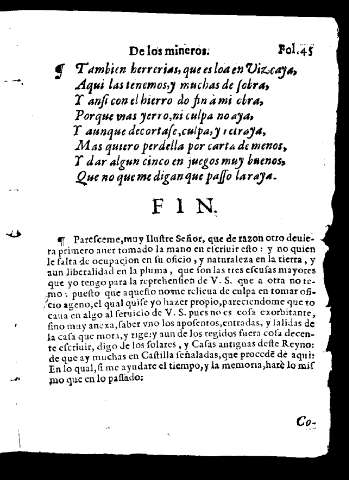 De los mineros. Fol.45
¶ Tambien herrerias, que es loa en Vizcaya,
Aqui las tenemos, y muchas de sobra,
Y ansi con el hierro do fin à mi obra,
Porque mas yerro, ni culpa no aya,
Y aunque de cortase, culpa, y
Mas quiero perdella por carta de menos,
Y dar algun cinco en juegos muy buenos,
Que no que me digan que passo la raya.
FIN.
¶ Paresceme, muy Ilustre Señor, que de razon otro deuie-
ra primero auer tomado la mano en escriuir esto: y no quien
le falta de ocupacion en su oficio, y naturaleza en la tierra, y
aun liberalidad en la pluma, que son las tres escusas mayores
que yo tengo para la reprehension de V. S. que a otra no te-
mo: puesto que aquesto no me relieua de culpa en tomar ofi-
cio ageno, el qual quise yo hazer propio, pareciendome que to
caua en algo al seruicio de V. S. pues no es cosa exorbitante,
sino muy anexa, saber vno los aposentos, entradas, y salidas de
la casa que mora, y rige: y aun de los regidos fuera cosa decen-
te escriuir, digo de los solares, y Casas antiguas deste Reyno:
de que ay muchas en Castilla señaladas, que procedē de aqui:
En lo qual, si me ayudare el tiempo, y la memoria, harè lo mis
mo que en lo passado:
Co-